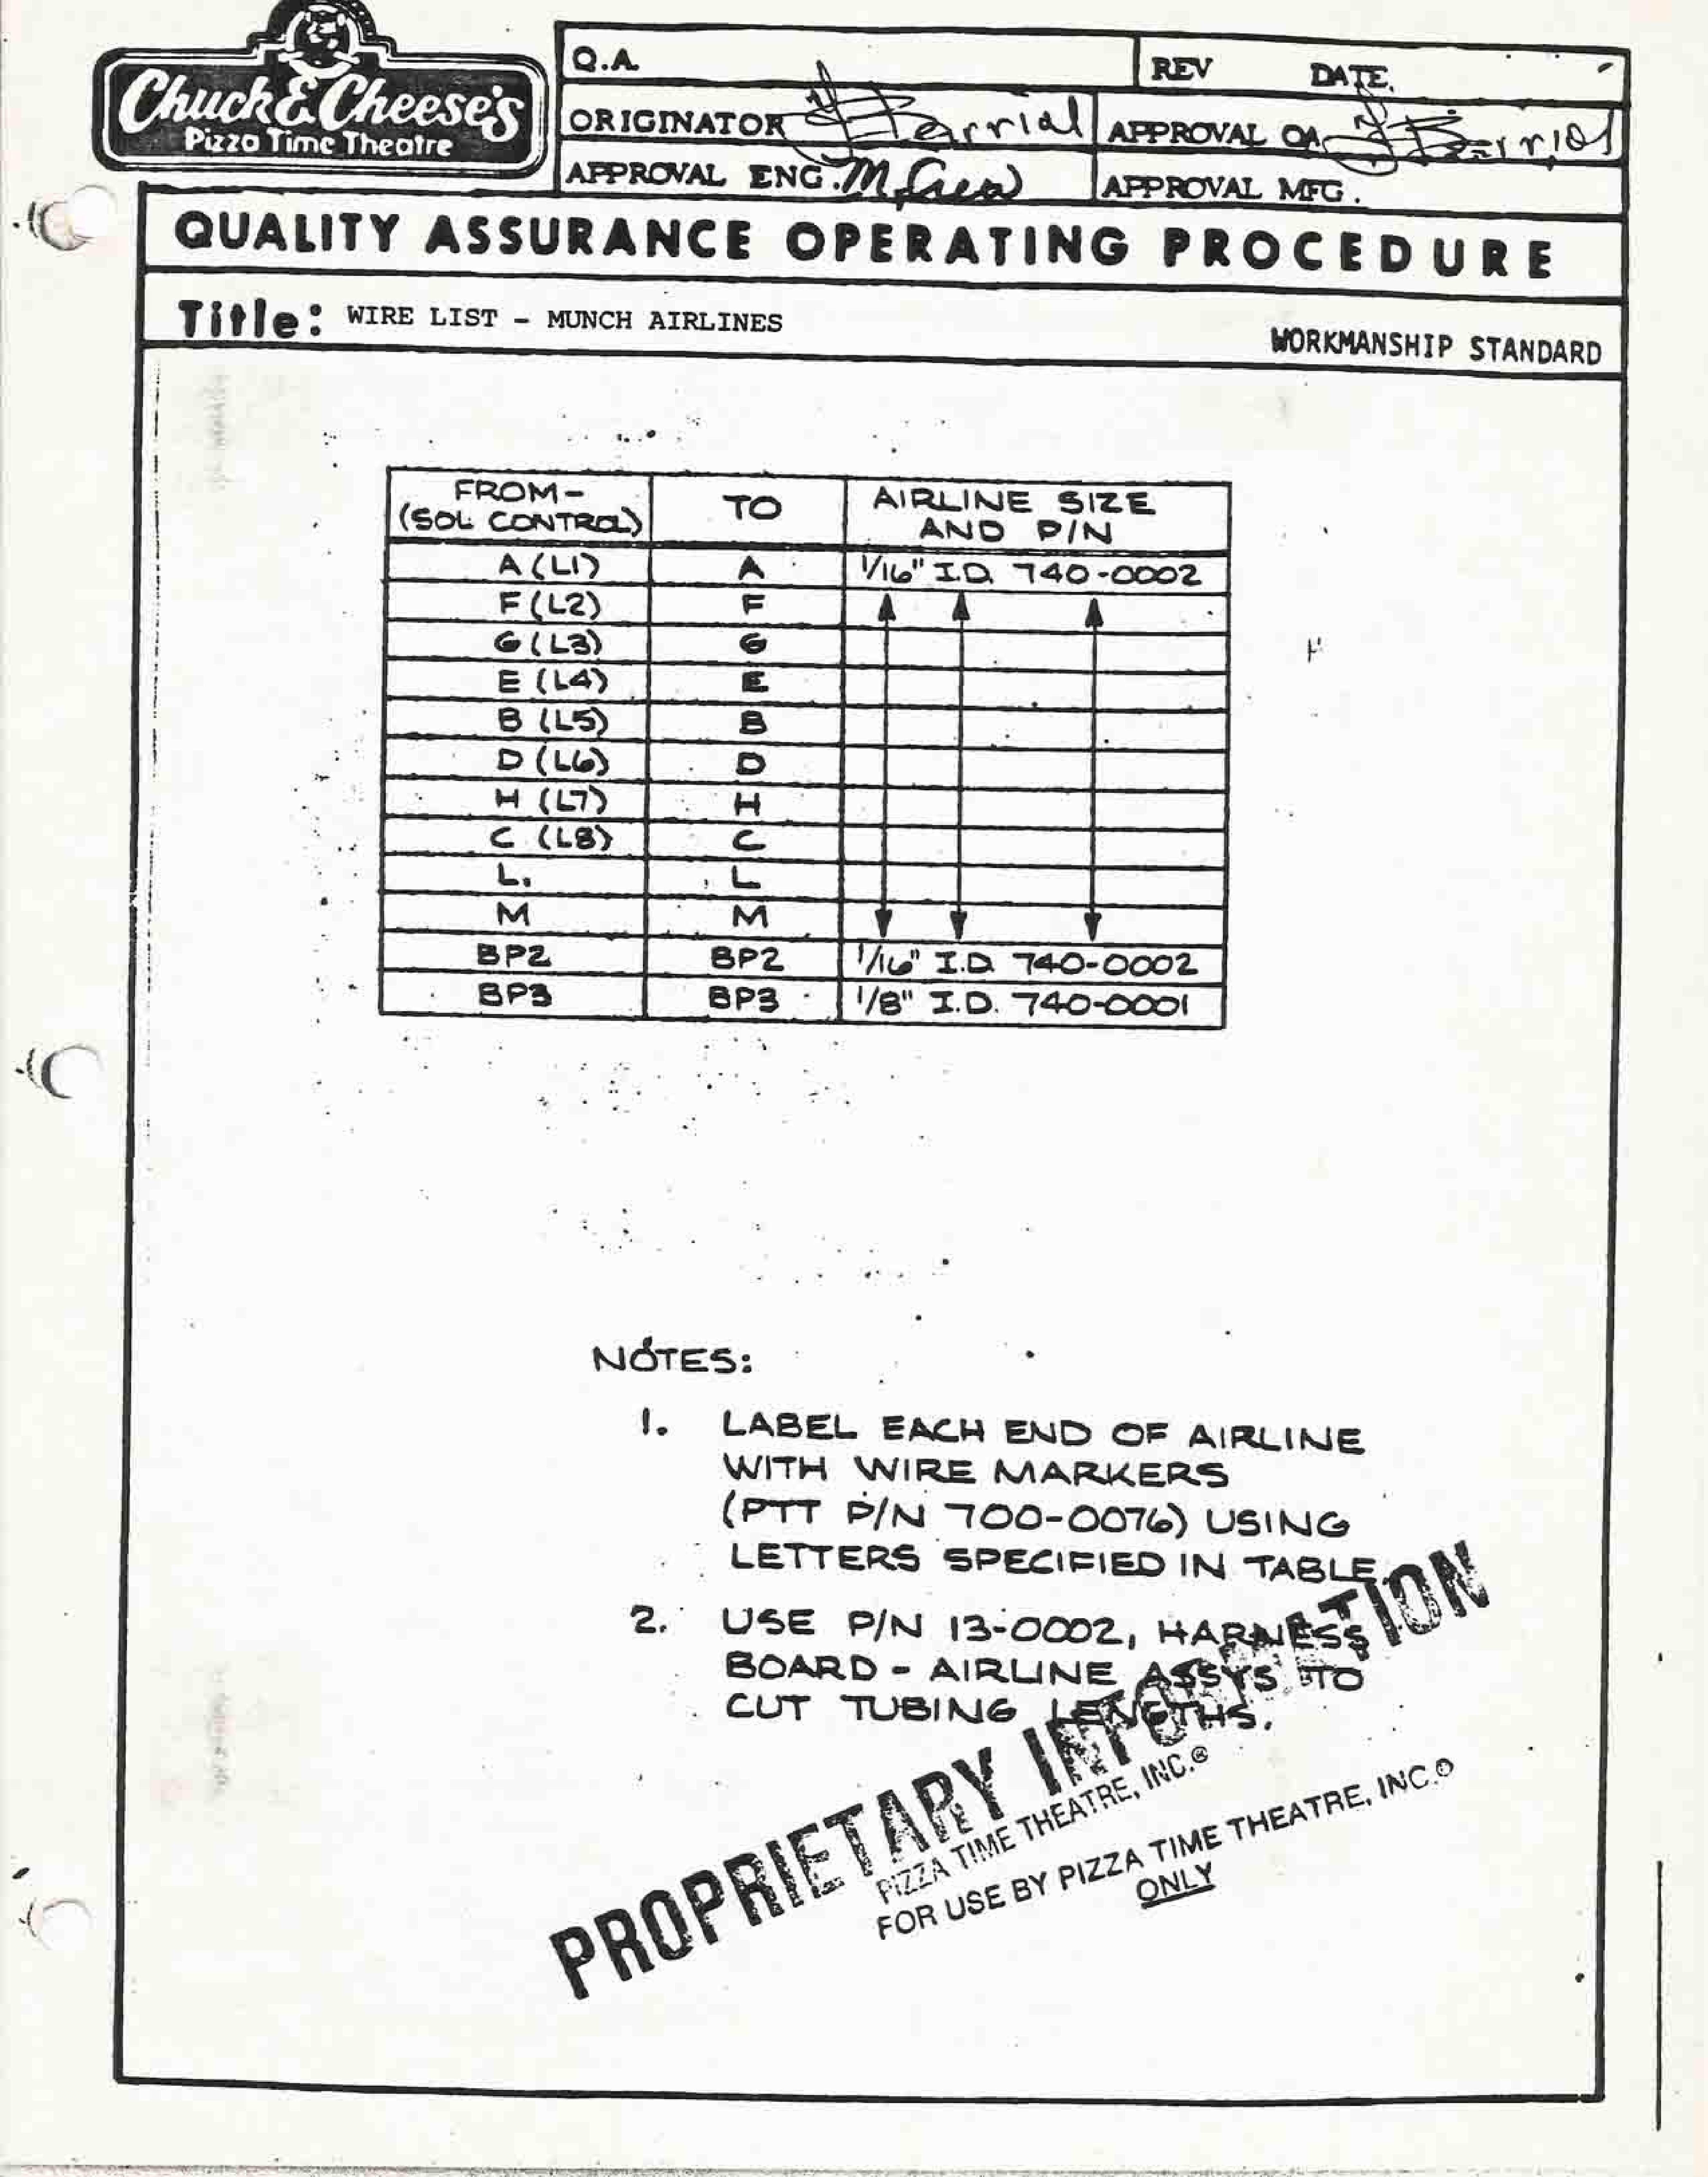 Chuck E. Cheese's
Pizza Time Theatre
Q.A.
REV DATE.
ORIGINATOR
APPROVAL QA
APPROVAL ENG.
APPROVAL MFG.
QUALITY ASSURANCE OPERATING PROCEDURE
Title: WIRE LIST - MUNCH AIRLINES
WORKMANSHIP STANDARD
FROM- (SOL CONTROL) TO AIRLINE SIZE AND P/N
A (L1) A 1/16" I.D. 740-0002
F (L2) F
G (L3) G
E (L4) E
B (L5) B
D (L6) D
H (L7) H
C (L8) C
L. L
M M
BP2 BP2 1/16" I.D. 740-0002
BP3 BP3 1/8" I.D. 740-0001
NOTES:
1. LABEL EACH END OF AIRLINE
WITH WIRE MARKERS
(PTT P/N 700-0076) USING
LETTERS SPECIFIED IN TABLE.
2. USE P/N 13-0002, HARNESS
BOARD - AIRLINE ASSYS TO
CUT TUBING LENGTHS.
PROPRIETARY INFORMATION
PIZZA TIME THEATRE, INC.®
FOR USE BY PIZZA TIME THEATRE, INC.®
ONLY